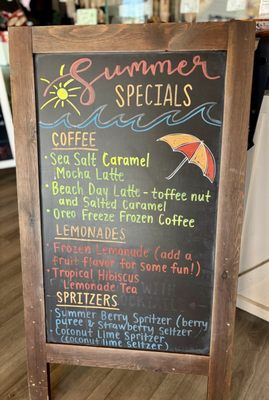 Summer
SPECIALS
COFFEE
• Sea Salt Caramel
Mocha Latte
• Beach Day Latte - toffee nut
and Salted Caramel
• Oreo Freeze Frozen Coffee
LEMONADES
• Frozen Lemonade (add a
fruit flavor for some fun!)
• Tropical Hibiscus
Lemonade Tea
SPRITZERS
• Summer Berry Spritzer (berry
puree & strawberry seltzer
• Coconut Lime Spritzer
(coconut lime seltzer)